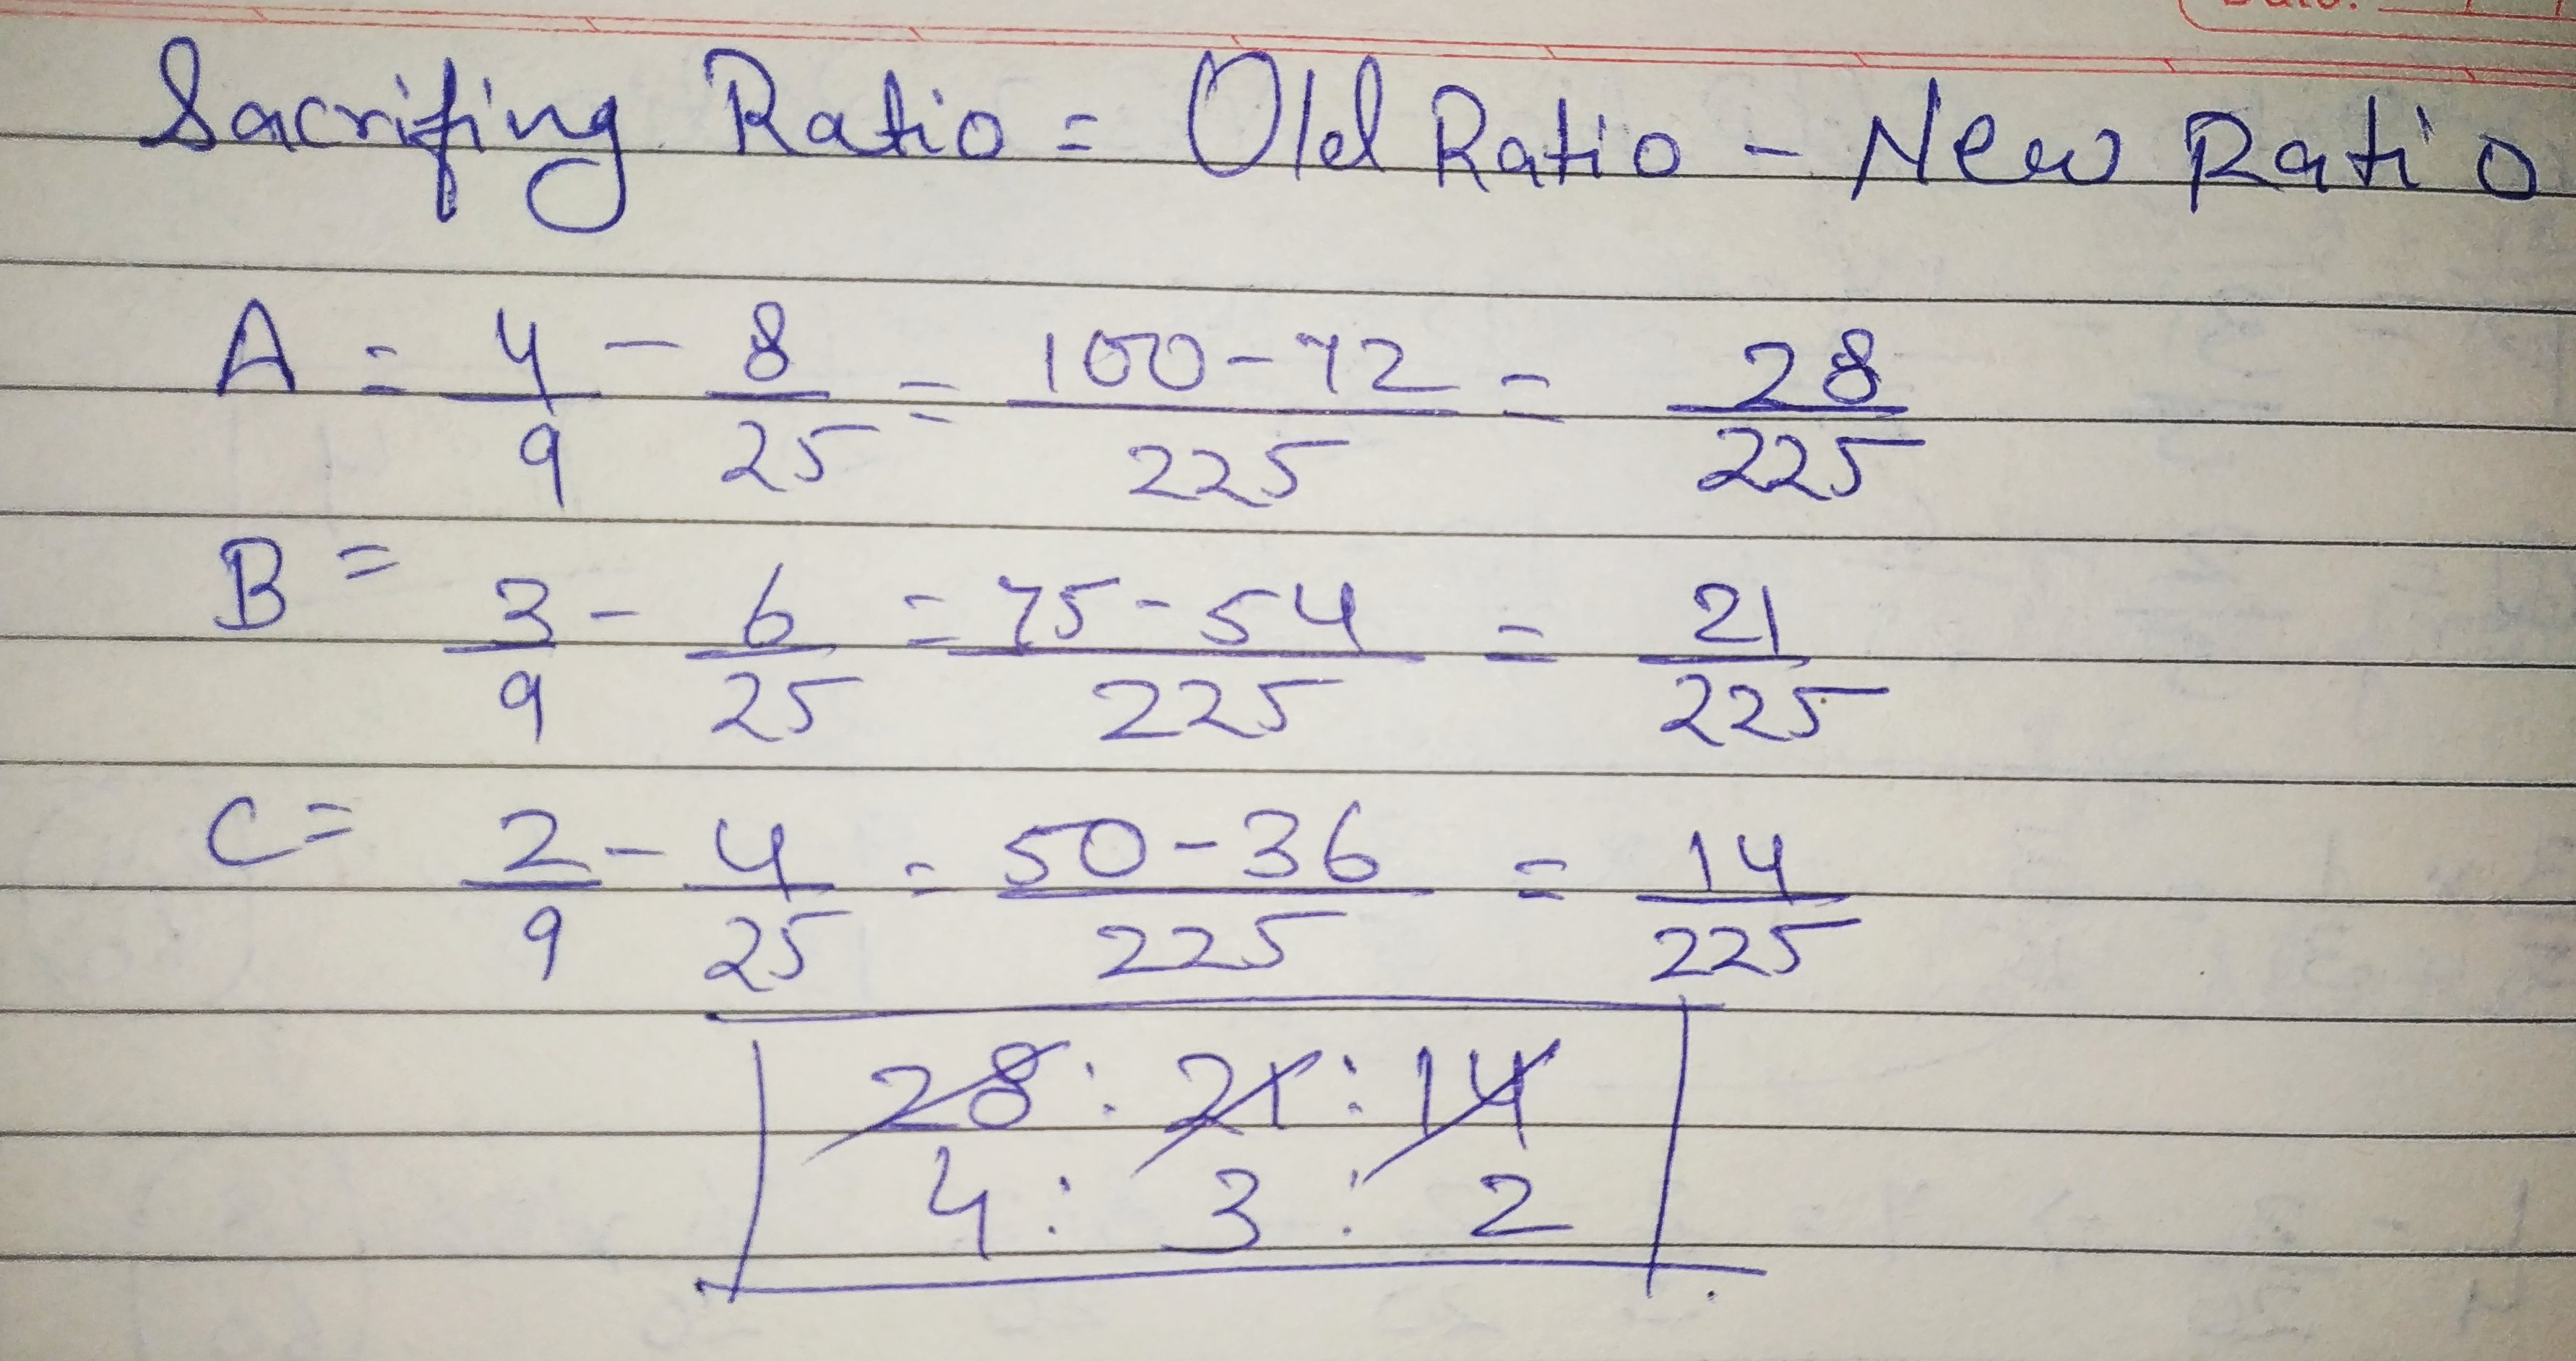 Date:
Sacrifing Ratio = Old Ratio - New Ratio
A = 4/9 - 8/25 = 100-72/225 = 28/225
B = 3/9 - 6/25 = 75-54/225 = 21/225
C = 2/9 - 4/25 = 50-36/225 = 14/225
28 : 21 : 14
4 : 3 : 2